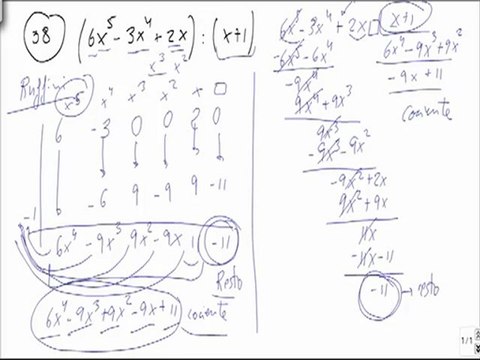 38 (6x⁵ - 3x⁴ + 2x) : (x+1)
x³ x²
Ruffini
x⁵ x⁴ x³ x² x □
6 -3 0 0 2 0
-6 9 -9 9 -11
-1
6x⁴ -9x³ 9x² -9x 11 -11
Resto
6x⁴ - 9x³ + 9x² - 9x + 11 cociente
6x⁵ - 3x⁴ + 2x □ x+1
-6x⁵ - 6x⁴ 6x⁴ - 9x³ + 9x²
-9x⁴ -9x + 11
9x⁴ + 9x³ cociente
9x³
-9x³ - 9x²
-9x² + 2x
9x² + 9x
11x
-11x - 11
-11 → resto
1/1